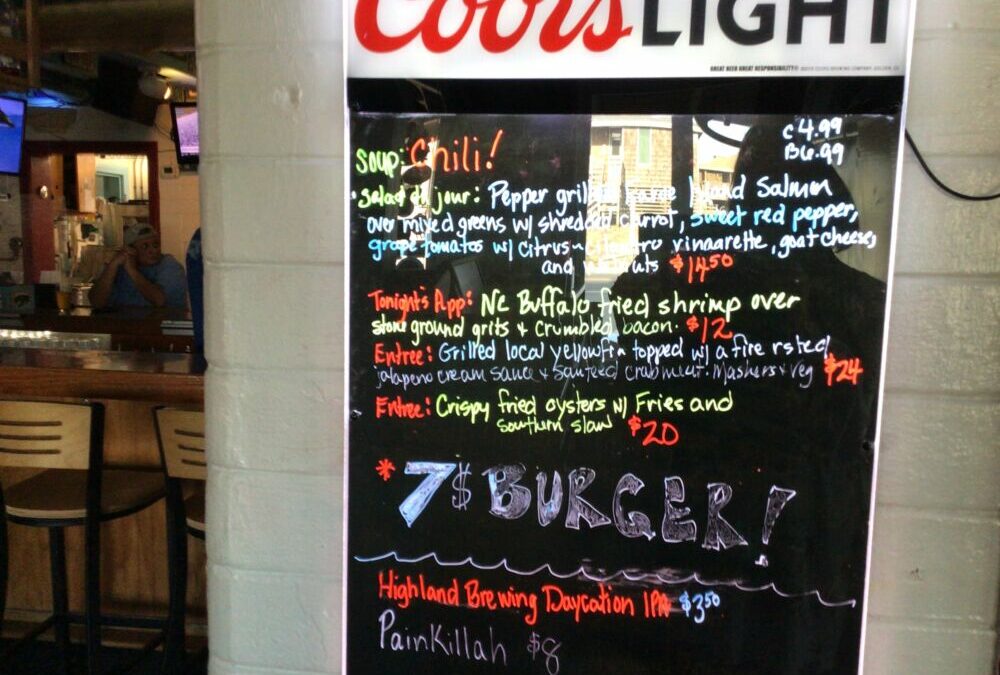 Coors LIGHT
GREAT BEER GREAT RESPONSIBILITY®
C 4.99
Soup: Chili!
B 6.99
Salad du jour: Pepper grilled Salmon
over mixed greens w/ shredded carrot, sweet red pepper,
grape tomatos w/ citrus-cilantro vinaarette, goat cheese,
and walnuts $14.50
Tonight's App: NC Buffalo fried shrimp over
stone ground grits & crumbled bacon. $12
Entree: Grilled local yellowfin topped w/ a fire rsted
jalapeno cream sauce & sauteed crabmeat. Mashers & veg $24
Entree: Crispy fried oysters w/ Fries and
southern slaw $20
*7$ BURGER!
Highland Brewing Daycation IPA $3.50
PainKillah $8